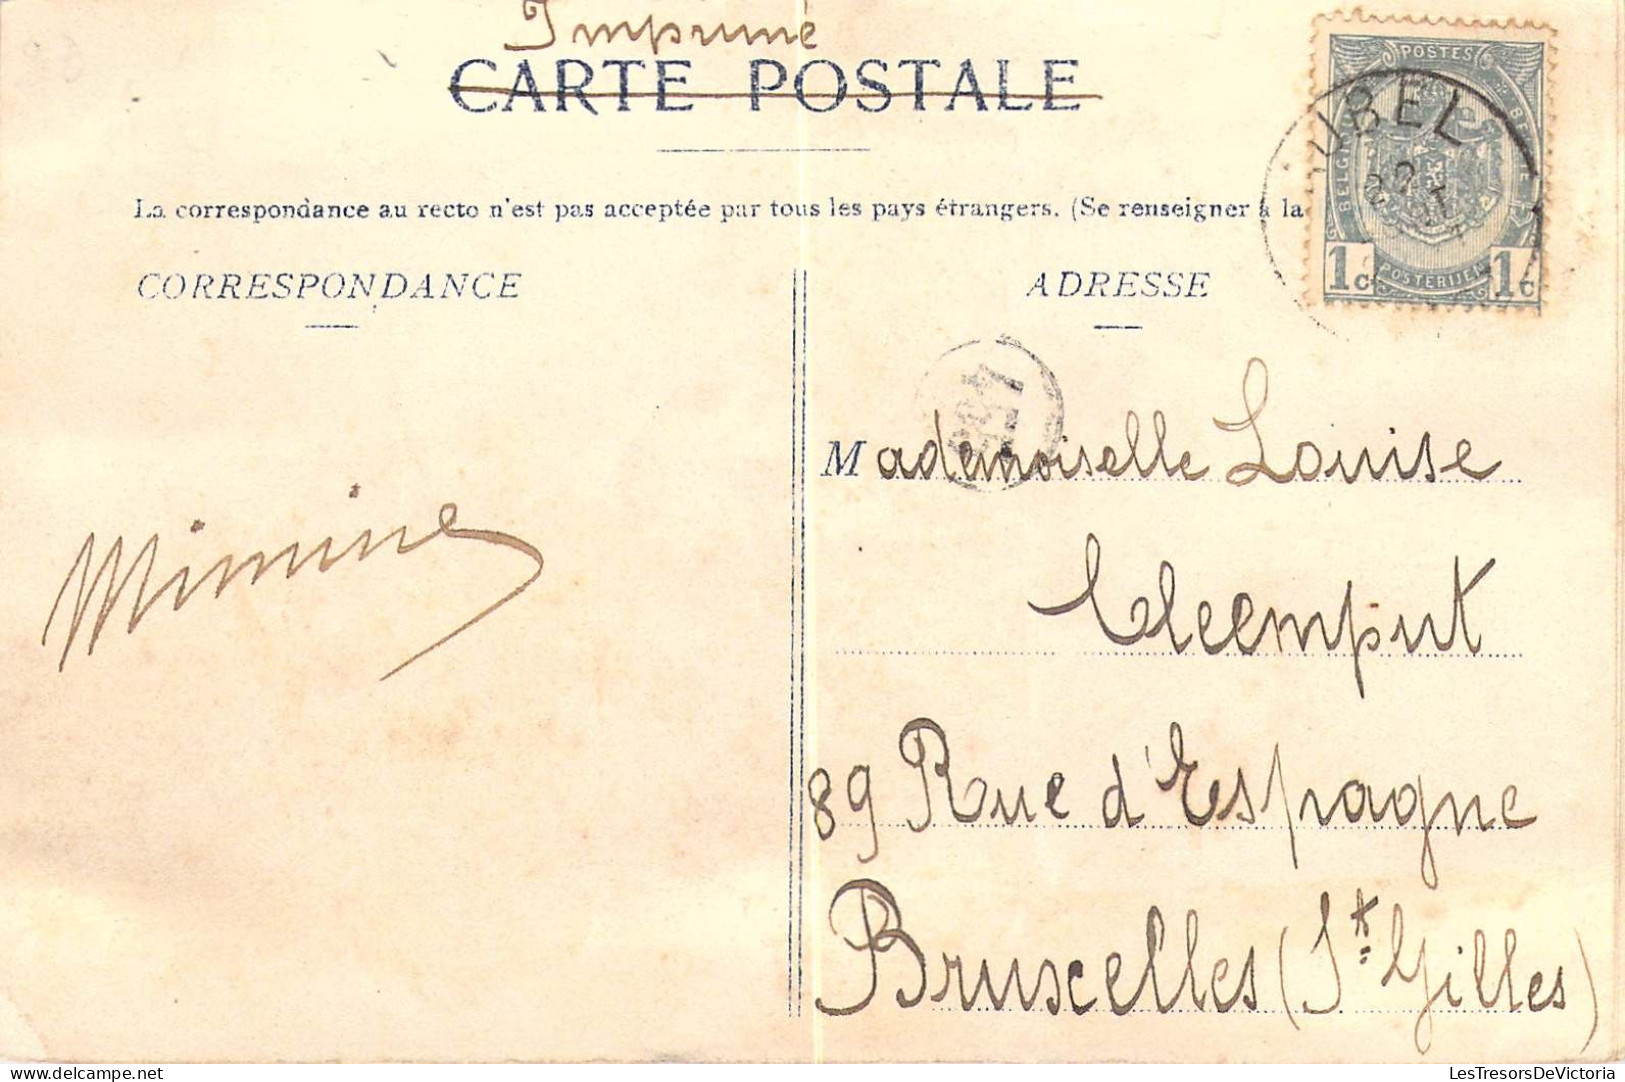 Imprimé
CARTE POSTALE
La correspondance au recto n'est pas acceptée par tous les pays étrangers. (Se renseigner à la
POSTES
BELGIQUE
BELGIË
POSTERIJEN
1c 1c
UBEL
22
CORRESPONDANCE
ADRESSE
Mademoiselle Louise
Cleemput
89 Rue d'Espagne
Bruxelles (St Gilles)
Mimine
LesTresorsDeVictoria